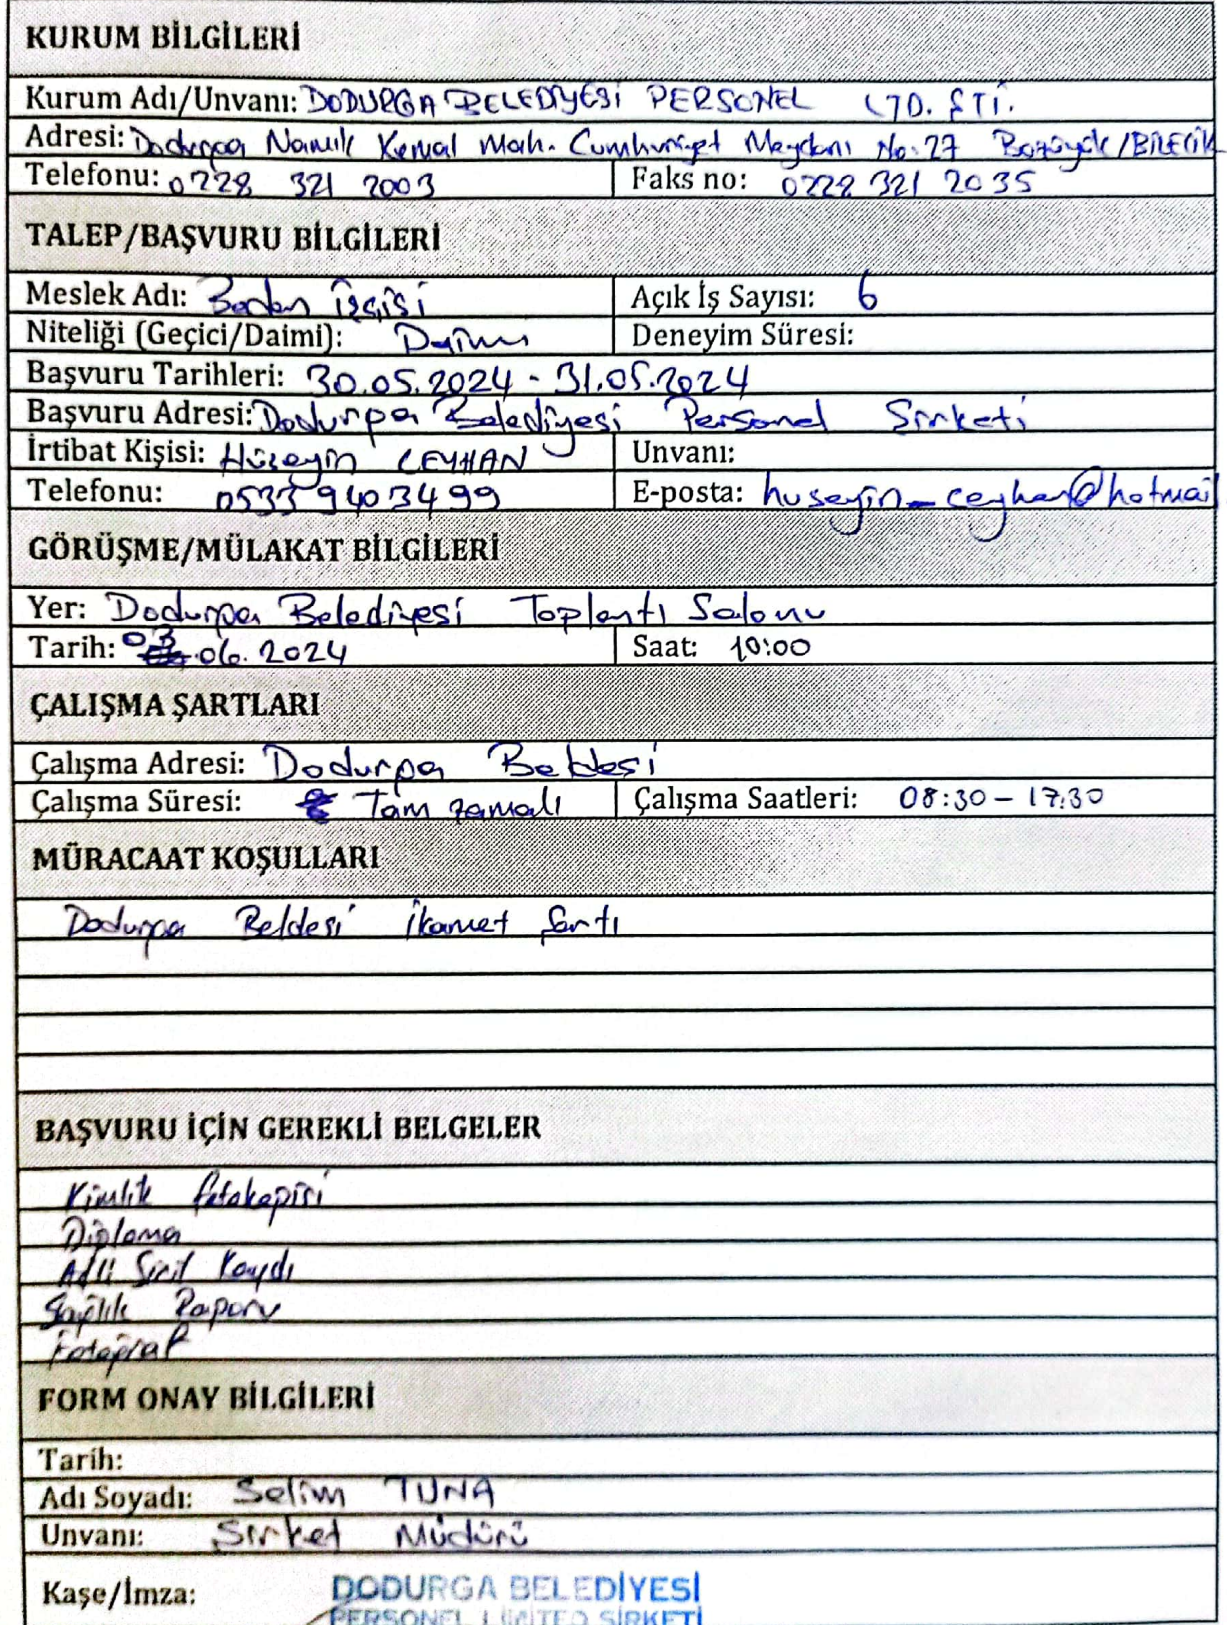 KURUM BİLGİLERİ
Kurum Adı/Unvanı: DODURGA BELEDİYESİ PERSONEL LTD. ŞTİ.
Adresi: Dodurga Namık Kemal Mah. Cumhuriyet Meydanı No:27 Bozüyük/BİLECİK
Telefonu: 0228 321 2003 Faks no: 0228 321 2035
TALEP/BAŞVURU BİLGİLERİ
Meslek Adı: Beden İşçisi Açık İş Sayısı: 6
Niteliği (Geçici/Daimi): Daimi Deneyim Süresi:
Başvuru Tarihleri: 30.05.2024 - 31.05.2024
Başvuru Adresi: Dodurga Belediyesi Personel Şirketi
İrtibat Kişisi: Hüseyin CEYHAN Unvanı:
Telefonu: 0533 940 34 99 E-posta: huseyin_ceyhan@hotmail
GÖRÜŞME/MÜLAKAT BİLGİLERİ
Yer: Dodurga Belediyesi Toplantı Salonu
Tarih: 03.06.2024 Saat: 10:00
ÇALIŞMA ŞARTLARI
Çalışma Adresi: Dodurga Beldesi
Çalışma Süresi: Tam zamalı Çalışma Saatleri: 08:30 - 17:30
MÜRACAAT KOŞULLARI
Dodurga Beldesi İkamet Şartı
BAŞVURU İÇİN GEREKLİ BELGELER
Kimlik fotokopisi
Diploma
Adli Sicil Kaydı
Sağlık Raporu
Fotoğraf
FORM ONAY BİLGİLERİ
Tarih:
Adı Soyadı: Selim TUNA
Unvanı: Şirket Müdürü
Kaşe/İmza: DODURGA BELEDİYESİ
PERSONEL LİMİTED ŞİRKETİ